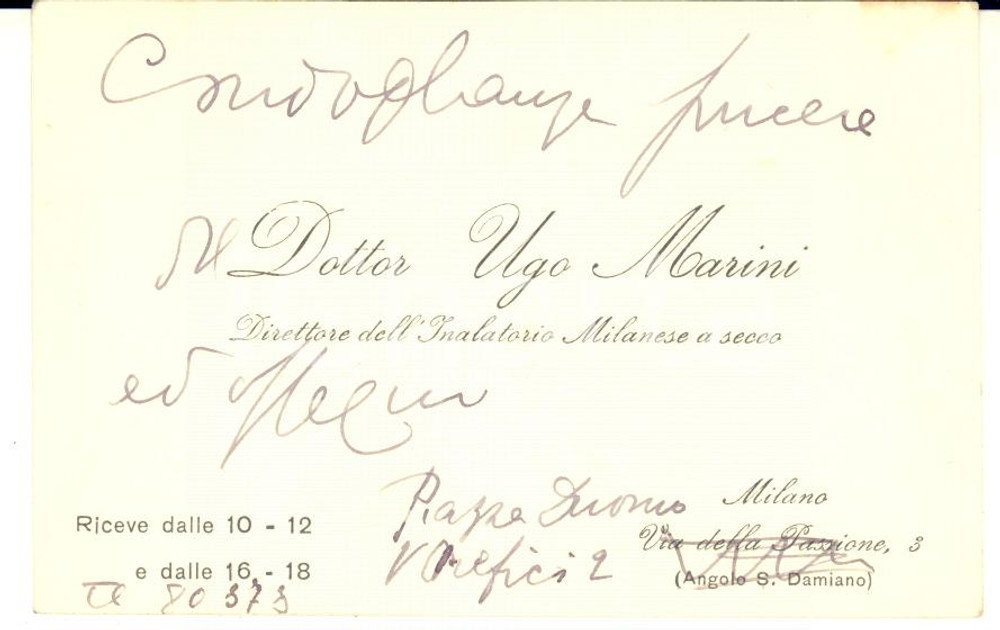 Condoglianze sincere
Il Dottor Ugo Marini
Direttore dell'Inalatorio Milanese a secco
ed ossequi
Riceve dalle 10 - 12
e dalle 16 - 18
Tel 80373
Piazza Duomo
V Orefici 2
Milano
Via della Passione, 3
(Angolo S. Damiano)